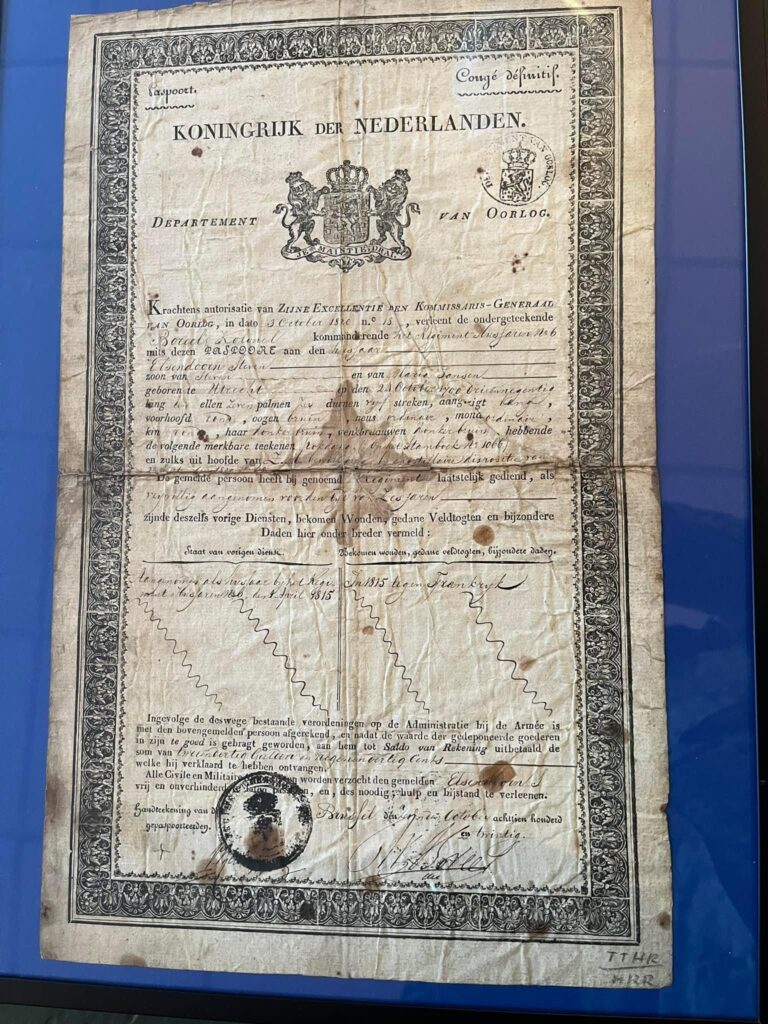 Paspoort.
Congé définitif.
KONINGRIJK DER NEDERLANDEN.
DEPARTEMENT VAN OORLOG.
JE MAINTIENDRAI
Krachtens autorisatie van ZIJNE EXCELLENTIE DEN KOMMISSARIS-GENERAAL
VAN OORLOG, in dato 3 October 1820 n.º 18, verleent de ondergeteekende
Boreel Kolonel kommanderende het Regiment Hussaren No 6
mits dezen PASPOORT aan den Hussaar
Elsendoorn Steven
zoon van Steven en van Maria Jansen
geboren te Utrecht op den October
lang ellen zeven palmen duimen streken, aangezigt
voorhoofd rond, oogen bruin, neus ordinair, mond ordinair,
kin rond, haar donkerbruin, wenkbraauwen donker bruin, hebbende
de volgende merkbare teekenen Stamboek Nr 1066
en zulks uit hoofde van
De gemelde persoon heeft bij genoemd Regiment laatstelijk gediend, als
vrywillig aangenomen voor den tyd van Zes jaren
zijnde deszelfs vorige Diensten, bekomen Wonden, gedane Veldtogten en bijzondere
Daden hier onder breder vermeld:
Staat van vorigen dienst.
Bekomen wonden, gedane veldtogten, bijzondere daden.
aangenomen als hussaar by het Regi
ment Husaren No 6, den April 1815
In 1815 tegen Frankryk
Ingevolge de deswege bestaande verordeningen op de Administratie bij de Armée is
met den bovengemelden persoon afgerekend, en nadat de waarde der gedeponeerde goederen
in zijn te goed is gebragt geworden, aan hem tot Saldo van Rekening uitbetaald de
som van Gulden en Cents
welke hij verklaard te hebben ontvangen.
Alle Civile en Militaire worden verzocht den gemelden Elsendoorn S
vrij en onverhinderd te laten passeren, en, des noodig, hulp en bijstand te verleenen.
Handteekening van den
gepasporteerden.
Brussel den October achttien honderd
en twintig.
+
TTHR
HRR